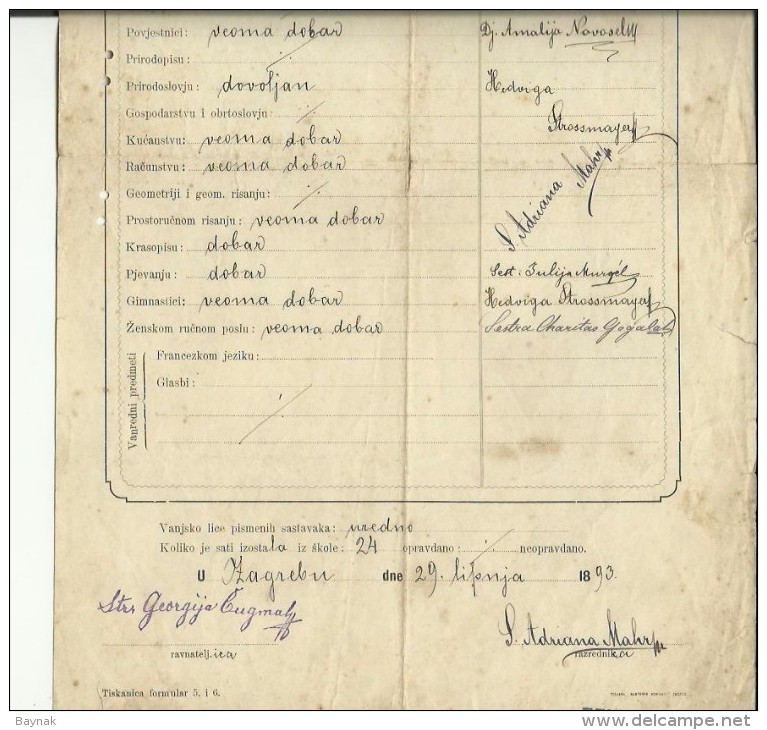 Povjestnici: veoma dobar Dj. Amalija Novosel
Prirodopisu: /
Prirodoslovju: dovoljan Hedviga
Gospodarstvu i obrtoslovju: /
Strossmayer
Kućanstvu: veoma dobar
Računstvu: veoma dobar
S. Adriana Mahr
Geometriji i geom. risanju: /
Prostoručnom risanju: veoma dobar
Krasopisu: dobar
Pjevanju: dobar Sest: Julija
Gimnastici: veoma dobar Hedviga Strossmayer
Ženskom ručnom poslu: veoma dobar Sestra Charitas
Vanredni predmeti
Francezkom jeziku:
Glasbi:
Vanjsko lice pismenih sastavaka: uredno
Koliko je sati izostala iz škole: 24 opravdano: / neopravdano.
U Zagrebu dne 29. lipnja 1893.
Georgija
ravnatelj.ica
S. Adriana Mahr
razrednica
Tiskanica formular 5. i 6.
Baynak
www.delcampe.net